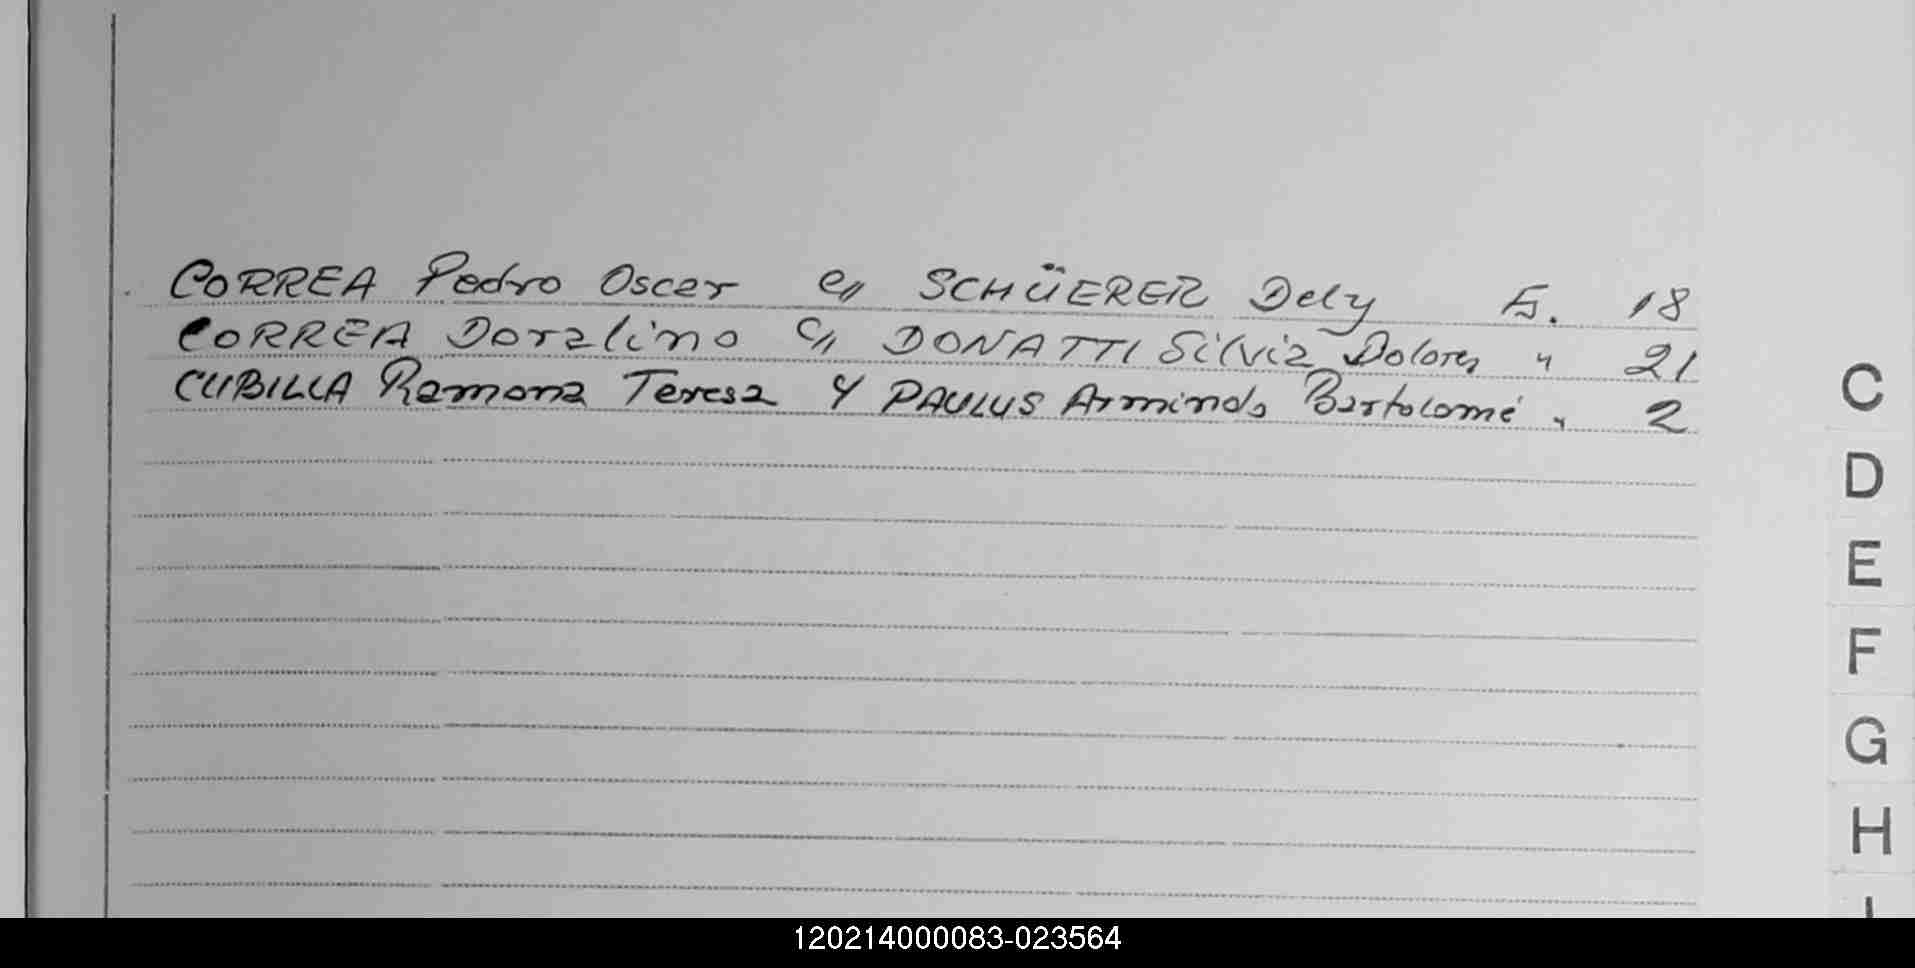 CORREA Pedro Oscar c/ SCHÜERER Dely F. 18
CORREA Doralino c/ DONATTI Silvia Dolores " 21
CUBILLA Ramona Teresa Y PAULUS Armindo Bartolomé " 2
C
D
E
F
G
H
I
120214000083-023564